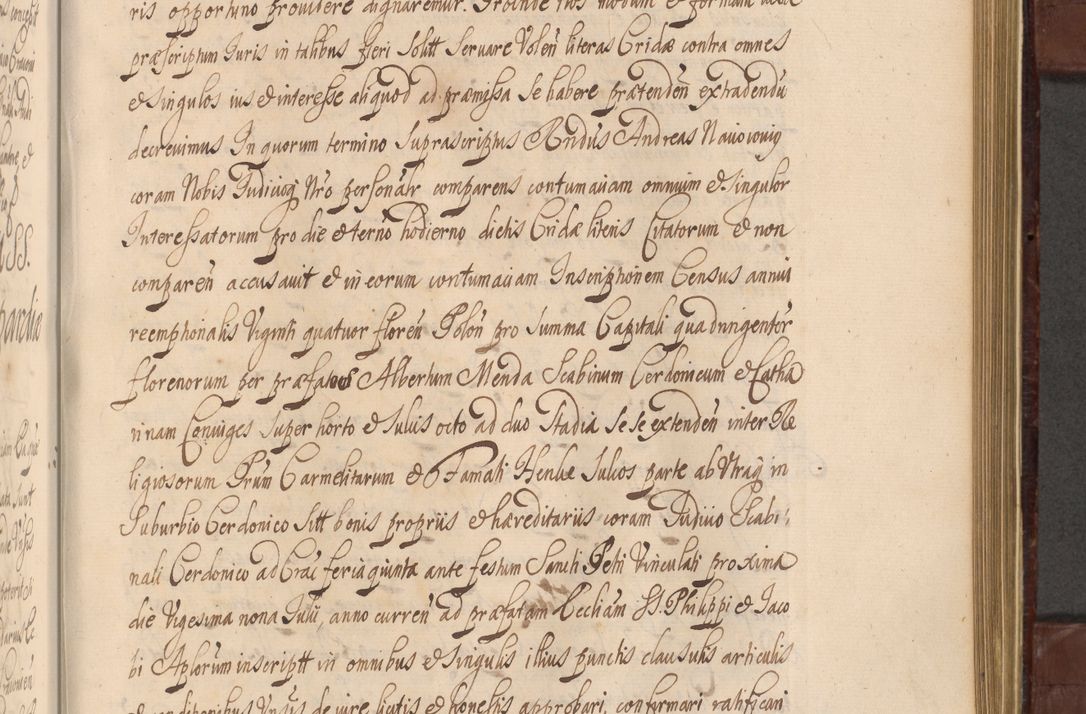 ris opportuno providere dignaremur. Proinde nos modum et formam
præscriptum Iuris in talibus fieri solitt servare Volen̄ literas Cridæ contra omnes
et singulos ius et interesse aliquod ad præmissa se habere prætenden̄ extradendū
decrevimus In quorum termino suprascriptus Rndūs Andreas
coram Nobis Iudicioq̄ Nrō personalr comparens contumaciam omnium et singulor
Interessatorum pro die et ternō hodierno dictis Cridæ literis Citatorum et non
comparen̄ accusavit et in eorum contumaciam Inscriptionem Census annui
reemptionalis Viginti quatuor floren̄ Polon̄ pro summa Capitali quadringentor̄
florenorum per præfatos Albertum Menda Scabinum Cerdonicum et Catha
rinam Coniuges super horto et sulcis octo ad duo stadia se se extenden̄ inter Re
ligiosorum Prūm Carmelitarum et Famati Henke sulcos parte ab Utraq̄ in
suburbio Cerdonico sitt bonis propriis et hæreditariis coram Iudicio Scabi
nali Cerdonico ad Crac̄ feria quinta ante festum Sancti Petri Vinculati proxima
die Vigesima nona Iulii, anno curren̄ ad præfatam Eccliam SS. Philippi et Iaco
bi Aplorum inscriptt in omnibus et singulis illius punctis clausulis articulis
et conditionibus de iure licitis et honestis approbari, confirmari ratificari